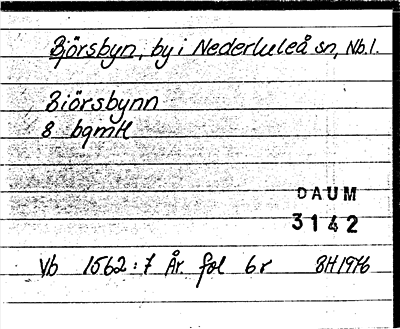 Björsbyn, by i Nederluleå sn, Nb.l.
Biörsbynn
8 bgmtl
DAUM
3142
Vb 1562:7 År. fol 6r BH1976